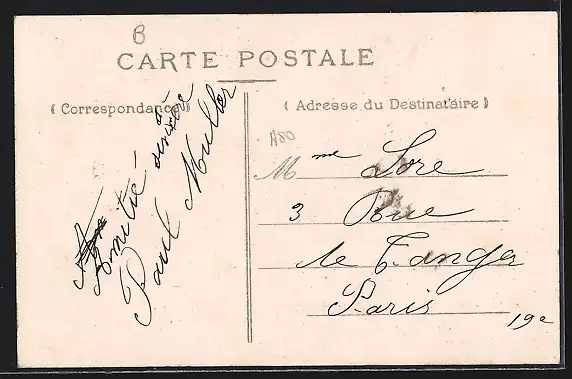 B
CARTE POSTALE
( Correspondance )
( Adresse du Destinataire )
A80
Amitié sincère
Paul Muller
Mme Lore
3 Rue
de Tanger
Paris
19e